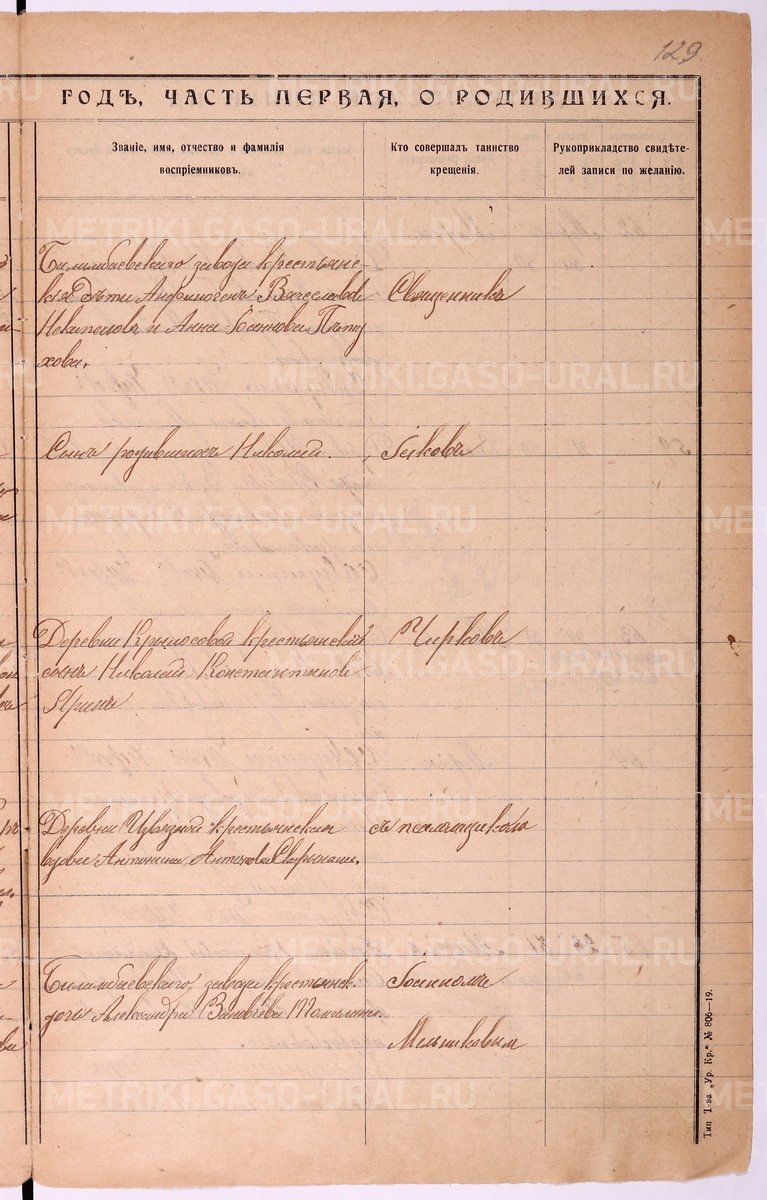 129.
ГОДѢ, ЧАСТЬ ПЕРВАЯ, О РОДИВШИХСЯ.
Званіе, имя, отчество и фамилія
воспріемниковъ.
Кто совершалъ таинство
крещенія.
Рукоприкладство свидѣте-
лей записи по желанію.
Билимбаевскаго завода крестьянс-
кія дѣти Анфиногенъ Вячеславовъ
и Анна Іоаннова Пѣту
хова.
Священникъ
Сынъ родившихъ Николай.
Іаковъ
Деревни Крылосовой крестьянскій
сынъ Николай Константиновъ
Яринъ
Чирковъ
Деревни крестьянская
вдова Антонина Антонова
съ псаломщикомъ
Билимбаевскаго завода крестьянск.
дочь Александра
Іоанномъ
Мельниковымъ
Тип Т-ва „Ур. Кр.“ № 806—19.
METRIKI.GASO-URAL.RU